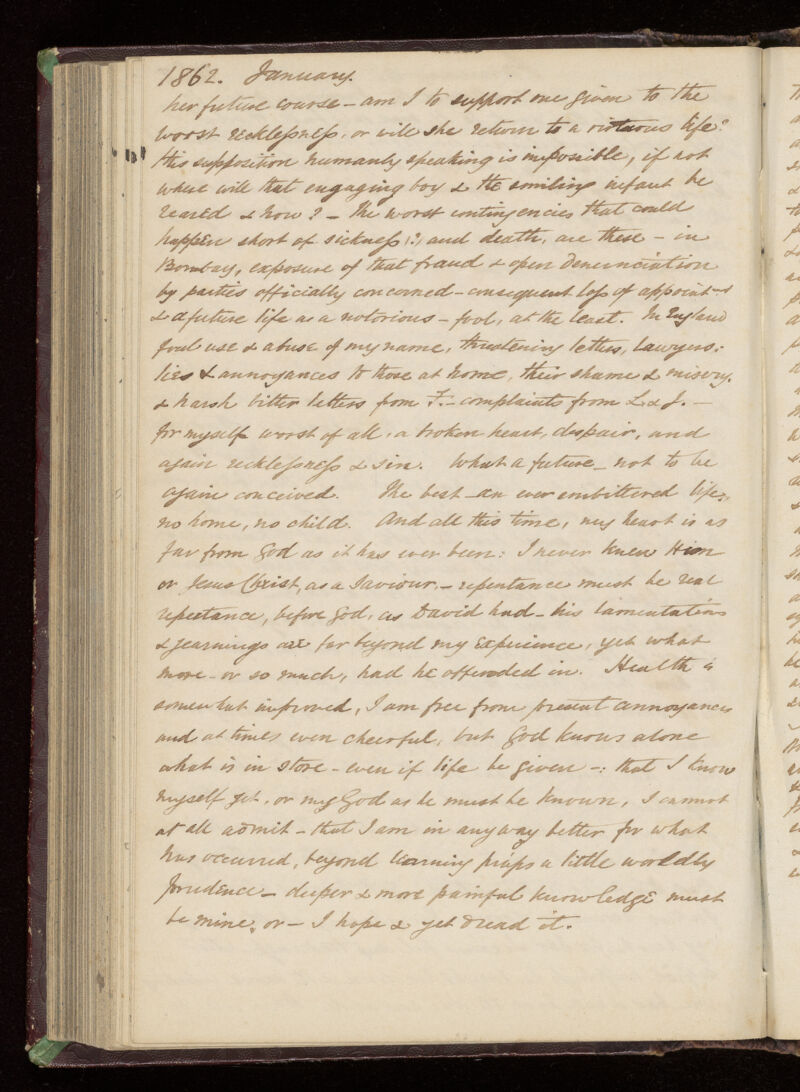 1862. January.
her future course - am I to support one given to the
worst recklessness, or will she return to a virtuous life?
this supposition humanly speaking is impossible, if not
where will that engaging boy & the smiling infant be
reared & how? - The worst contingencies that could
happen short of sickness (?) and death, are these - in
Bombay, exposure of that fraud & open denunciation
by parties officially concerned - consequent loss of appointmt
& a future life as a notorious - fool, at the least. In England
foul use & abuse of my name, threatening letters, Lawyers,
lies & annoyances to those at home, their shame & misery,
& harsh bitter letters from F. - complaints from L & J. -
for myself worst of all, a broken heart, despair, and
again recklessness & sin. What a future - not to be
again conceived. The best - an ever embittered life,
no home, no child. And all this time, my heart is as
far from God as it has ever been: I never knew Him
or Jesus Christ, as a Saviour, - repentance must be real
repentance, before God, as David had - his lamentations
& yearnings are far beyond my experience, yet what
more - or so much, had he offended in. Health is
somewhat improved, I am free from present annoyances
and at times even cheerful, but God knows alone
what is in store - even if life be given -: that I know
myself yet, or my God as he must be known, I cannot
at all admit - that I am in anyway better for what
has occurred, beyond learning p'haps a little worldly
prudence - deeper & more painful knowledge must
be mine, or - I hope & yet dread it.